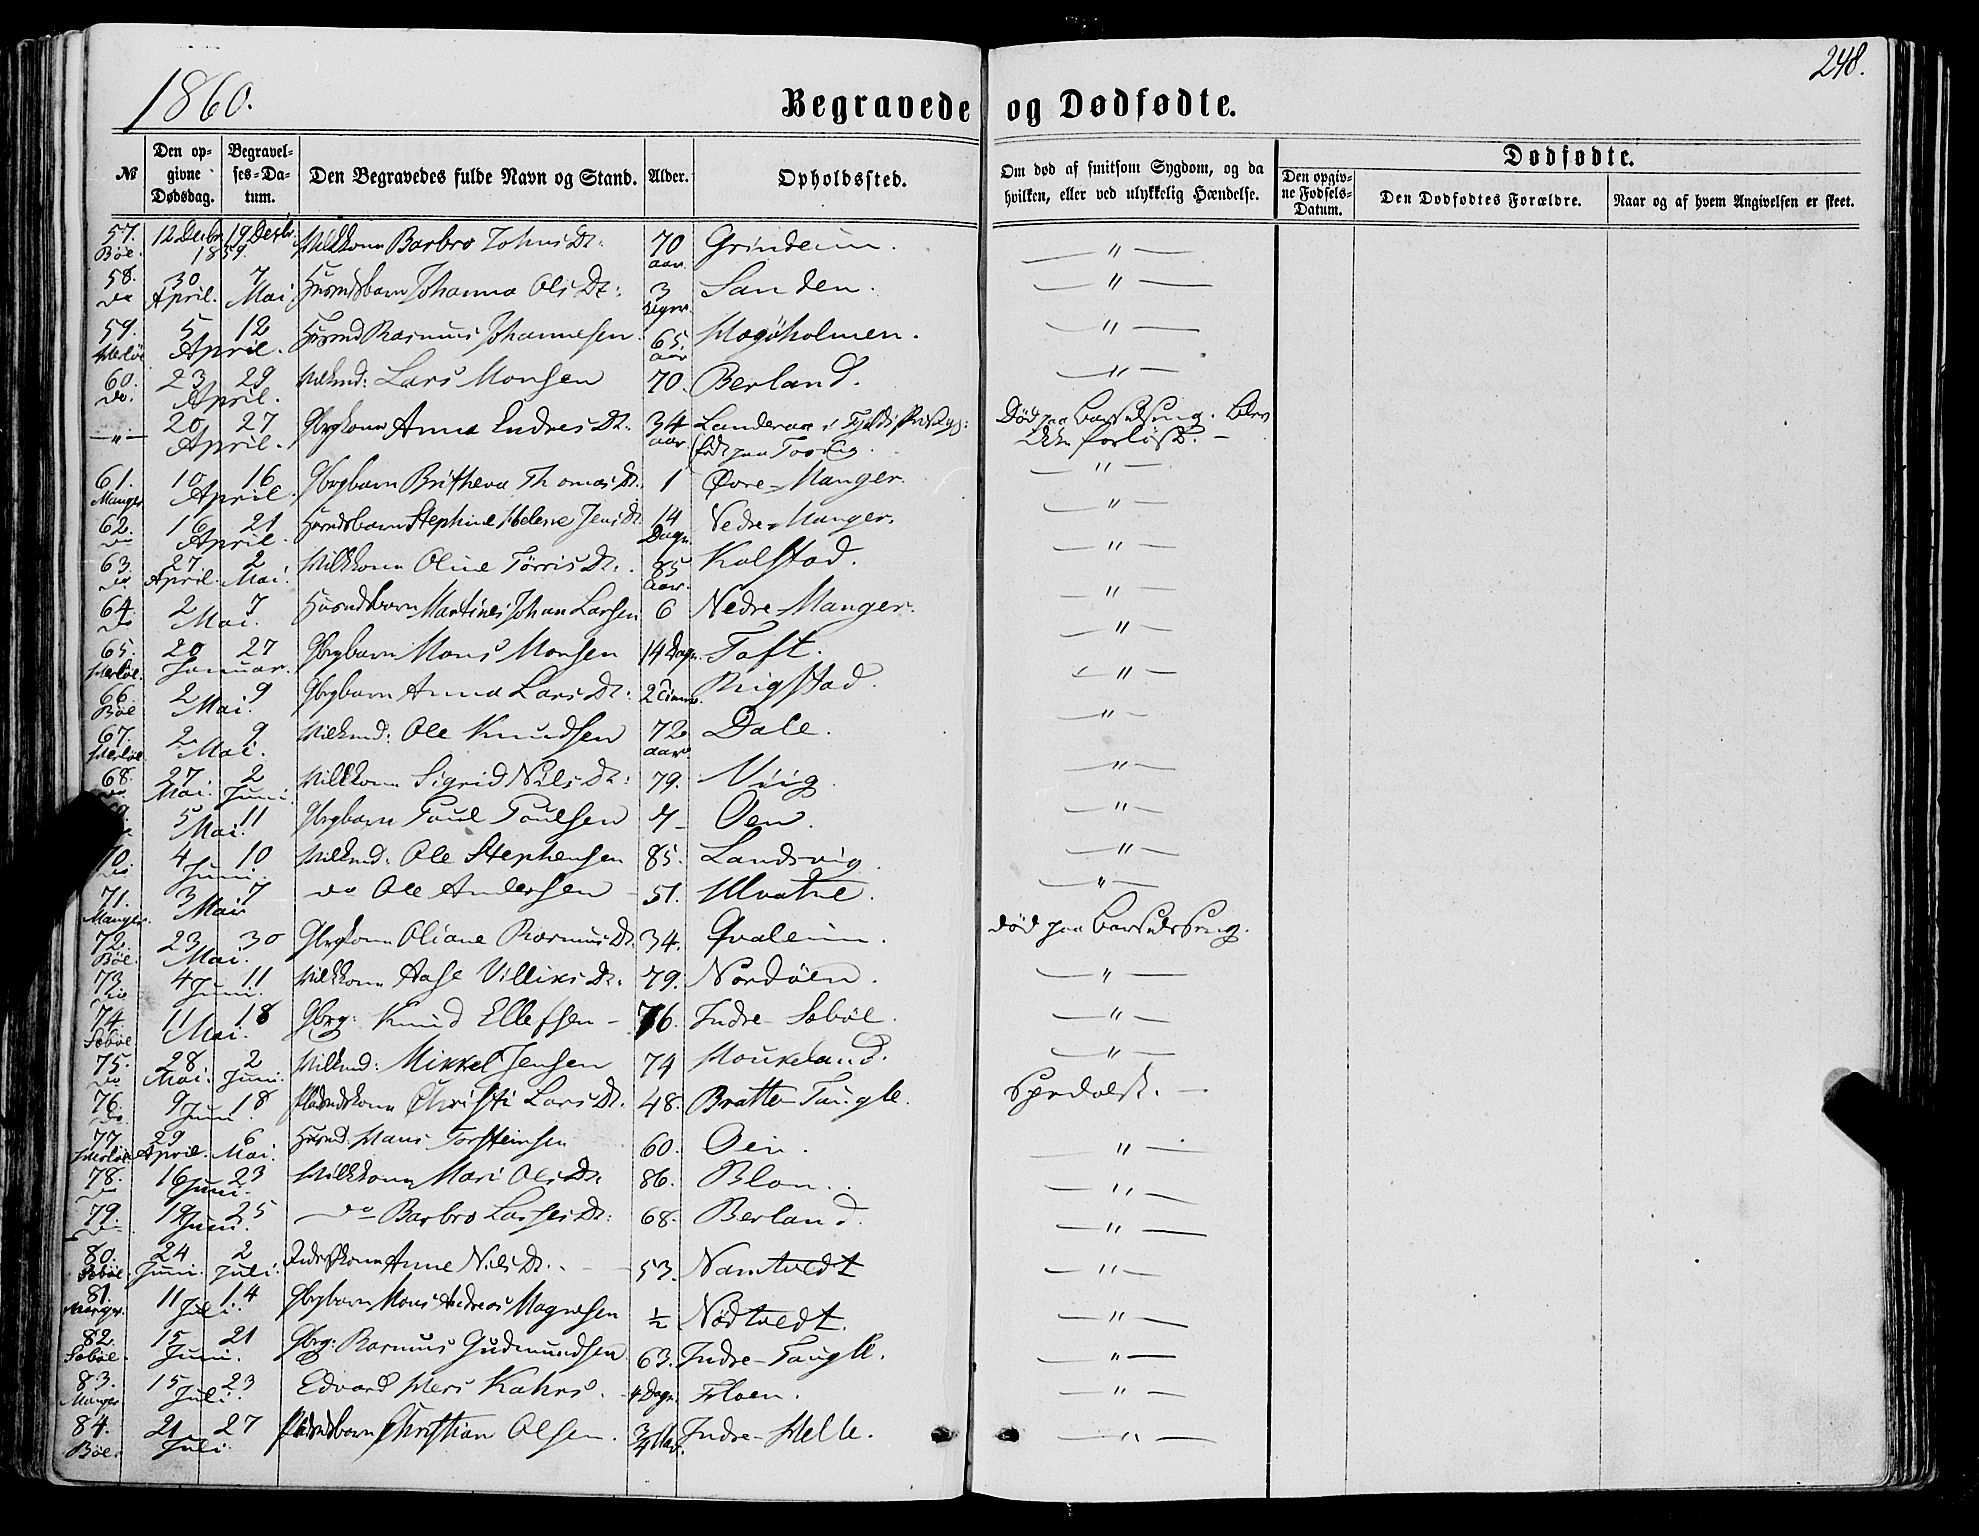 1860.
Begravede og Dødfødte.
248.
№
Den opgivne Dødsdag.
Begravelses-Datum.
Den Begravedes fulde Navn og Stand.
Alder.
Opholdssted.
Om død af smitsom Sygdom, og da hvilken, eller ved ulykkelig Hændelse.
Dødfødte.
Den opgivne Fødsels-Datum.
Den Dødfødtes Forældre.
Naar og af hvem Angivelsen er skeet.
57. Bøe. 12 Decbr 19 Decbr 1859. Vilkkone Barbro Johns Dt: 70 aar. Grindeim. — " —
58. do 30 April. 7 Mai Huusmdsbarn Johanna Ols Dt: 3 Sanden. — " —
59. Herløe 5 12 April. Huusmd Rasmus Johannesen 65. aar Hagøholmen. — " —
60. do. 23 29 April. Vilkmd: Lars Monsen 70. Berland. — " —
— " — 20 27 April. Gbrgkone Anna Endres Dt. 34 aar. Landeraa i Fjelds Død paa Barselseng. Blev Ikke forløst. —
61. Manger 10 16 April. Gbrgbarn Britheva Thomas Dt. 1 Øvre-Manger. — " —
62. do 16 21 April. Huusmdsbarn Stephine Helene Jens Dt 14 Dage. Nedre-Manger. — " —
63. do 27 April. 2 Mai. Vilkkone Oline Tørris Dt. 85 Aar. Kalstad. — " —
64. do 2 7 Mai. Huusmdsbarn Martines Johan Larsen 6 Nedre-Manger. — " —
65. Herløe. 20 27 Januar. Gbrgbarn Mons Monsen 14 Dage. Toft. — " —
66. Bøe 2 9 Mai. Gbrgbarn Anna Lars Dt: 2 Timer. Rigstad. — " —
67. Herløe 2 9 Mai. Vilkmd: Ole Knudsen 72 aar. Dale. — " —
68. do 27 Mai. 2 Juni. Vilkkone Sigrid Nils Dt: 79. Viig — " —
5 11 Mai. Gbrgbarn Poul Poulsen 7 - Oen. — " —
70. do 4 10 Juni. Vilkmd: Ole Stephensen 85. Landsvig. — " —
71. Manger. 3 7 Mai do Ole Andersen - 51. Hvatne. — " —
72. Bøe. 23 30 Mai. Gbrgkone Oliane Rasmus Dt. 34. Qvaleim. død paa Barselseng.
73 do 4 11 Juni. Vilkkone Aase Villiks Dt. 79. Nordøen. — " —
74 Sæbøe 11 18 Mai. Gbrg: Knud Ellefsen - 76. Indre-Sæbøe. — " —
75. do 28 Mai. 2 Juni. Vilkmd: Mikkel Jensen 74 Moukeland. — " —
76. do 9 18 Juni. Pladsmdskone Christi Lars Dt. 48. Bratte-Tangle. Spedalsk. —
77. Herløe 29 April. 6 Mai. Huusmd: Hans Torsteinsen 60. Oen. — " —
78. do 16 23 Juni. Vilkkone Mari Ols Dt. 86. Blom. — " —
79. do 19 25 Juni. do Barbro Lasses Dt: 68. Berland. — " —
80. Sæbøe 24 Juni. 2 Juli. Inderstkone Anne Nils Dt. - 53. Namtvedt — " —
81. Manger. 11 14 Juli. Gbrgbarn Mons Andreas Magnesen ½ Nødtvedt. — " —
82. Sæbøe. 15 21 Juni. Gbrg: Rasmus Gudmundsen 63. Indre-Tangle. — " —
83. Manger 15 23 Juli. Edvard Mers Kahrs. 4 Dage. Floen. — " —
84. Bøe. 21 27 Juli. Pladsmdsbarn Christian Olsen. 3/4 Indre-Helle. — " —